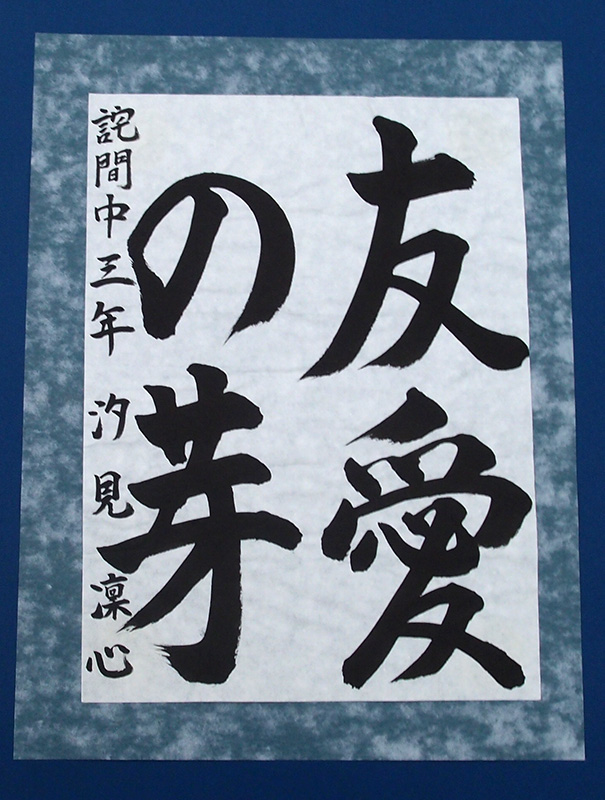 友愛
の芽
詫間中三年 汐見凛心